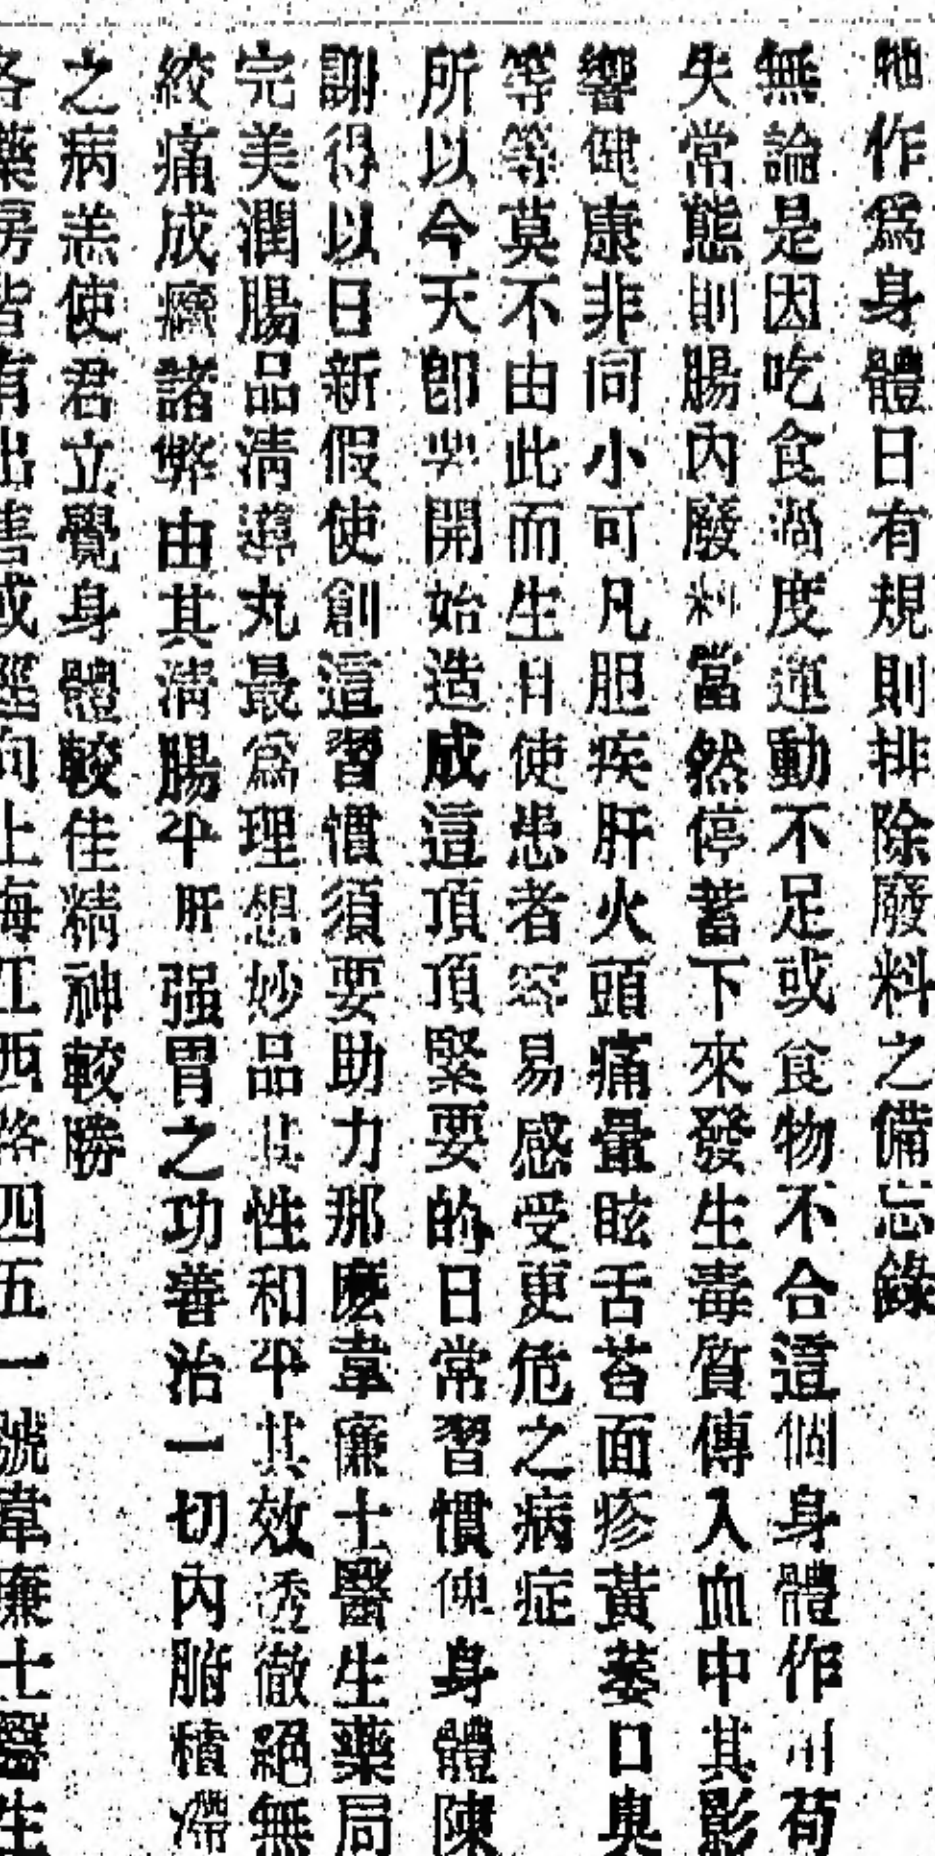 牠作爲身體日有規則排除廢料之備忘錄
無論是因吃食過度運動不足或食物不合這個身體作用苟
失常態則腸內廢料當然停蓄下來發生毒質傳入血中其影
響健康非同小可凡胆疾肝火頭痛暈眩舌苔面疹黃萎口臭
等等莫不由此而生且使患者容易感受更危之病症
所以今天卽要開始造成這項頂緊要的日常習慣使身體陳
謝得以日新假使創這習慣須要助力那麽韋廉士醫生藥局
完美潤腸品清導丸最爲理想妙品其性和平其效透徹絕無
絞痛成癮諸弊由其清腸平肝强胃之功善治一切內臟積滯
之病恙使君立覺身體較佳精神較勝
各藥房皆有出售或逕向上海江西路四五一號韋廉士醫生